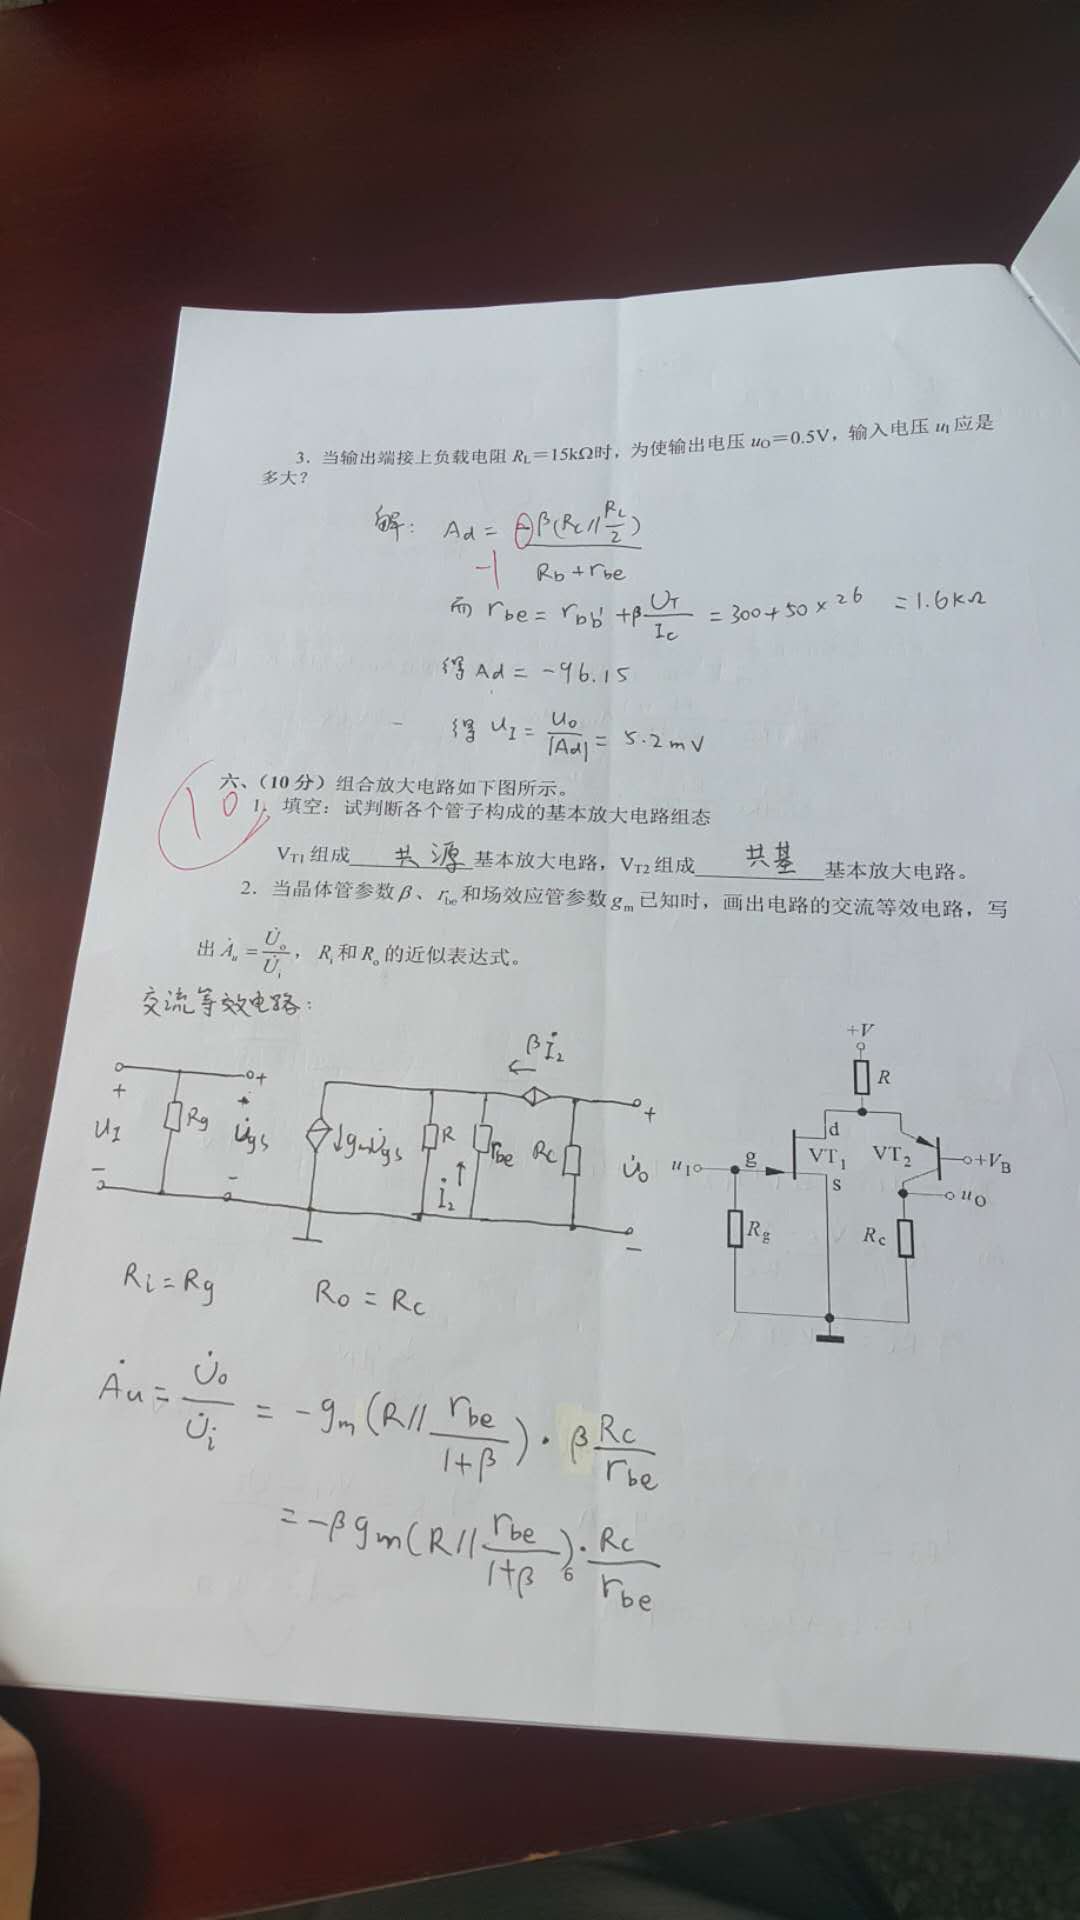 3．当输出端接上负载电阻 RL＝15kΩ时，为使输出电压 uO＝0.5V，输入电压 uI 应是
多大？
解： Ad = -β(Rc // RL/2) / (Rb + rbe)
-1
而 rbe = rbb' + β UT/Ic = 300 + 50 × 26 = 1.6kΩ
得 Ad = -96.15
得 uI = uo/|Ad| = 5.2mV
六、（10 分）组合放大电路如下图所示。
10
1．填空：试判断各个管子构成的基本放大电路组态
VT1 组成 共源 基本放大电路，VT2 组成 共基 基本放大电路。
2．当晶体管参数 β、rbe 和场效应管参数 gm 已知时，画出电路的交流等效电路，写
出 Ȧu = U̇o/U̇i，Ri 和 Ro 的近似表达式。
交流等效电路：
+ uI −
Rg
+ U̇gs −
gmU̇gs
R
İ2
rbe
βİ2
Rc
+ U̇o −
+V
R
d
VT1
VT2
+VB
uI
g
s
uO
Rg
Rc
Ri = Rg
Ro = Rc
Ȧu = U̇o/U̇i = -gm(R // rbe/(1+β)) · β Rc/rbe
= -βgm(R // rbe/(1+β)) · Rc/rbe
6